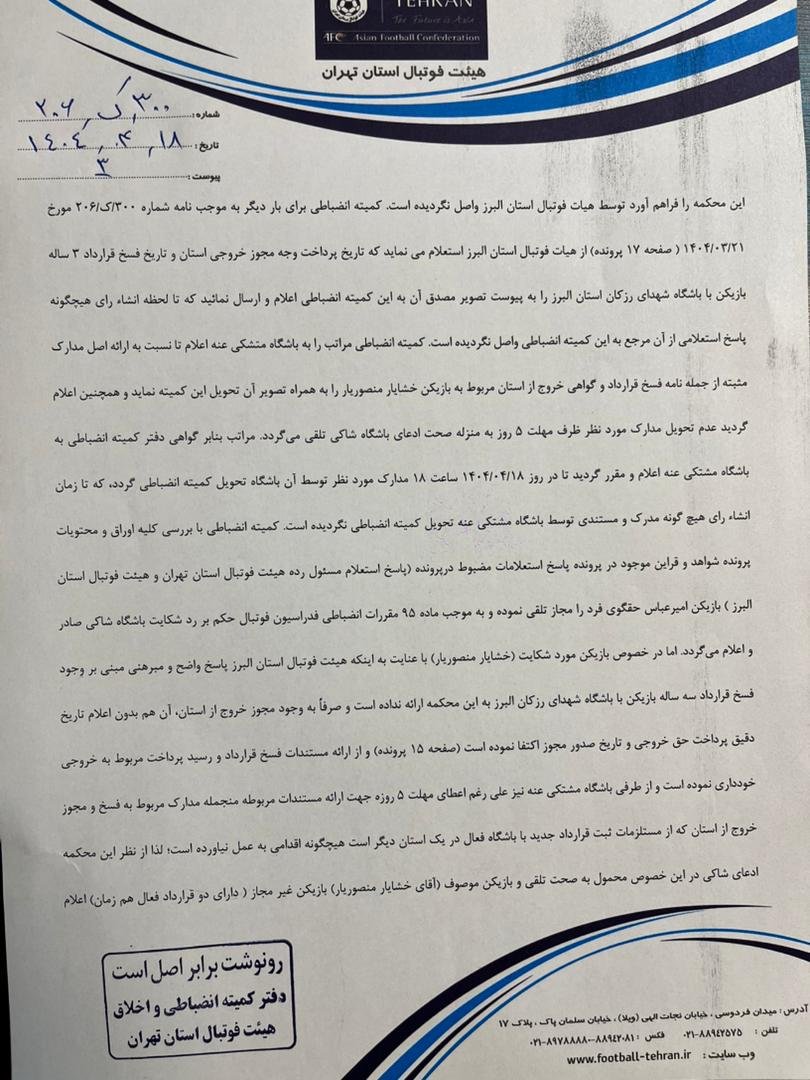 TEHRAN
The Future is Asia
AFC Asian Football Confederation
هیئت فوتبال استان تهران
شماره: ۳۰۰/ک/۲۰۶
تاریخ: ۱۴۰۴/۰۴/۱۸
پیوست: ۳
این محکمه را فراهم آورد توسط هیات فوتبال استان البرز واصل نگردیده است. کمیته انضباطی برای بار دیگر به موجب نامه شماره ۳۰۰/ک/۲۰۶ مورخ
۱۴۰۴/۰۳/۲۱ ( صفحه ۱۷ پرونده) از هیات فوتبال استان البرز استعلام می نماید که تاریخ پرداخت وجه مجوز خروجی استان و تاریخ فسخ قرارداد ۳ ساله
بازیکن با باشگاه شهدای رزکان استان البرز را به پیوست تصویر مصدق آن به این کمیته انضباطی اعلام و ارسال نمائید که تا لحظه انشاء رای هیچگونه
پاسخ استعلامی از آن مرجع به این کمیته انضباطی واصل نگردیده است. کمیته انضباطی مراتب را به باشگاه متشکی عنه اعلام تا نسبت به ارائه اصل مدارک
مثبته از جمله نامه فسخ قرارداد و گواهی خروج از استان مربوط به بازیکن خشایار منصوریار را به همراه تصویر آن تحویل این کمیته نماید و همچنین اعلام
گردید عدم تحویل مدارک مورد نظر ظرف مهلت ۵ روز به منزله صحت ادعای باشگاه شاکی تلقی می‌گردد. مراتب بنابر گواهی دفتر کمیته انضباطی به
باشگاه مشتکی عنه اعلام و مقرر گردید تا در روز ۱۴۰۴/۰۴/۱۸ ساعت ۱۸ مدارک مورد نظر توسط آن باشگاه تحویل کمیته انضباطی گردد، که تا زمان
انشاء رای هیچ گونه مدرک و مستندی توسط باشگاه مشتکی عنه تحویل کمیته انضباطی نگردیده است. کمیته انضباطی با بررسی کلیه اوراق و محتویات
پرونده شواهد و قراین موجود در پرونده پاسخ استعلامات مضبوط درپرونده (پاسخ استعلام مسئول رده هیئت فوتبال استان تهران و هیئت فوتبال استان
البرز ) بازیکن امیرعباس حقگوی فرد را مجاز تلقی نموده و به موجب ماده ۹۵ مقررات انضباطی فدراسیون فوتبال حکم بر رد شکایت باشگاه شاکی صادر
و اعلام می‌گردد. اما در خصوص بازیکن مورد شکایت (خشایار منصوریار) با عنایت به اینکه هیئت فوتبال استان البرز پاسخ واضح و مبرهنی مبنی بر وجود
فسخ قرارداد سه ساله بازیکن با باشگاه شهدای رزکان البرز به این محکمه ارائه نداده است و صرفاً به وجود مجوز خروج از استان، آن هم بدون اعلام تاریخ
دقیق پرداخت حق خروجی و تاریخ صدور مجوز اکتفا نموده است (صفحه ۱۵ پرونده) و از ارائه مستندات فسخ قرارداد و رسید پرداخت مربوط به خروجی
خودداری نموده است و از طرفی باشگاه مشتکی عنه نیز علی رغم اعطای مهلت ۵ روزه جهت ارائه مستندات مربوطه منجمله مدارک مربوط به فسخ و مجوز
خروج از استان که از مستلزمات ثبت قرارداد جدید با باشگاه فعال در یک استان دیگر است هیچگونه اقدامی به عمل نیاورده است؛ لذا از نظر این محکمه
ادعای شاکی در این خصوص محمول به صحت تلقی و بازیکن موصوف (آقای خشایار منصوریار) بازیکن غیر مجاز ( دارای دو قرارداد فعال هم زمان) اعلام
رونوشت برابر اصل است
دفتر کمیته انضباطی و اخلاق
هیئت فوتبال استان تهران
آدرس: میدان فردوسی ، خیابان نجات الهی (ویلا) ، خیابان سلمان پاک ، پلاک ۱۷
تلفن : ۰۲۱-۸۸۹۴۲۵۷۵ فکس : ۸۸۹۴۲۰۸۱-۰۲۱-۸۹۷۸۸۸۸۰
وب سایت : www.football-tehran.ir